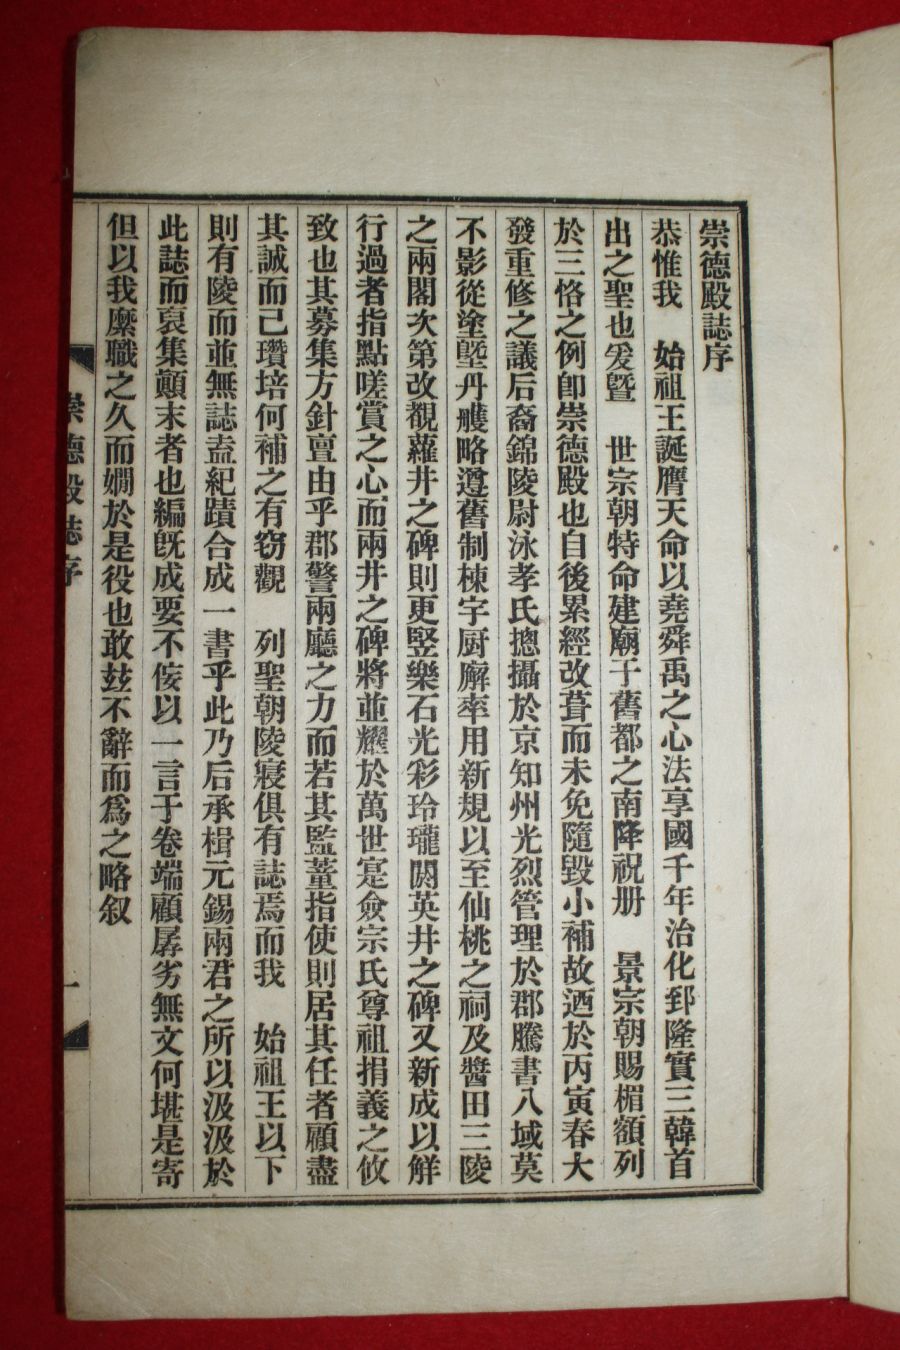 崇德殿誌序
恭惟我　始祖王誕膺天命以堯舜禹之心法享國千年治化郅隆實三韓首
出之聖也爰曁　世宗朝特命建廟于舊都之南降祝册　景宗朝賜楣額列
於三恪之例卽崇德殿也自後累經改葺而未免隨毀小補故迺於丙寅春大
發重修之議后裔錦陵尉泳孝氏摠攝於京知州光烈管理於郡騰書八域莫
不影從塗墍丹雘略遵舊制棟宇厨廨率用新規以至仙桃之祠及醬田三陵
之兩閣次第改覩蘿井之碑則更竪樂石光彩玲瓏閼英井之碑又新成以鮮
行過者指點嗟賞之心而兩井之碑將並耀於萬世寔僉宗氏尊祖捐義之攸
致也其募集方針亶由乎郡警兩廳之力而若其監董指使則居其任者顧盡
其誠而已瓚培何補之有窃觀　列聖朝陵寢俱有誌焉而我　始祖王以下
則有陵而並無誌盍紀蹟合成一書乎此乃后承楫元錫兩君之所以汲汲於
此誌而裒集顚末者也編旣成要不侫以一言于卷端顧孱劣無文何堪是寄
但以我縻職之久而嫺於是役也敢玆不辭而爲之略叙
崇德殿誌序
一